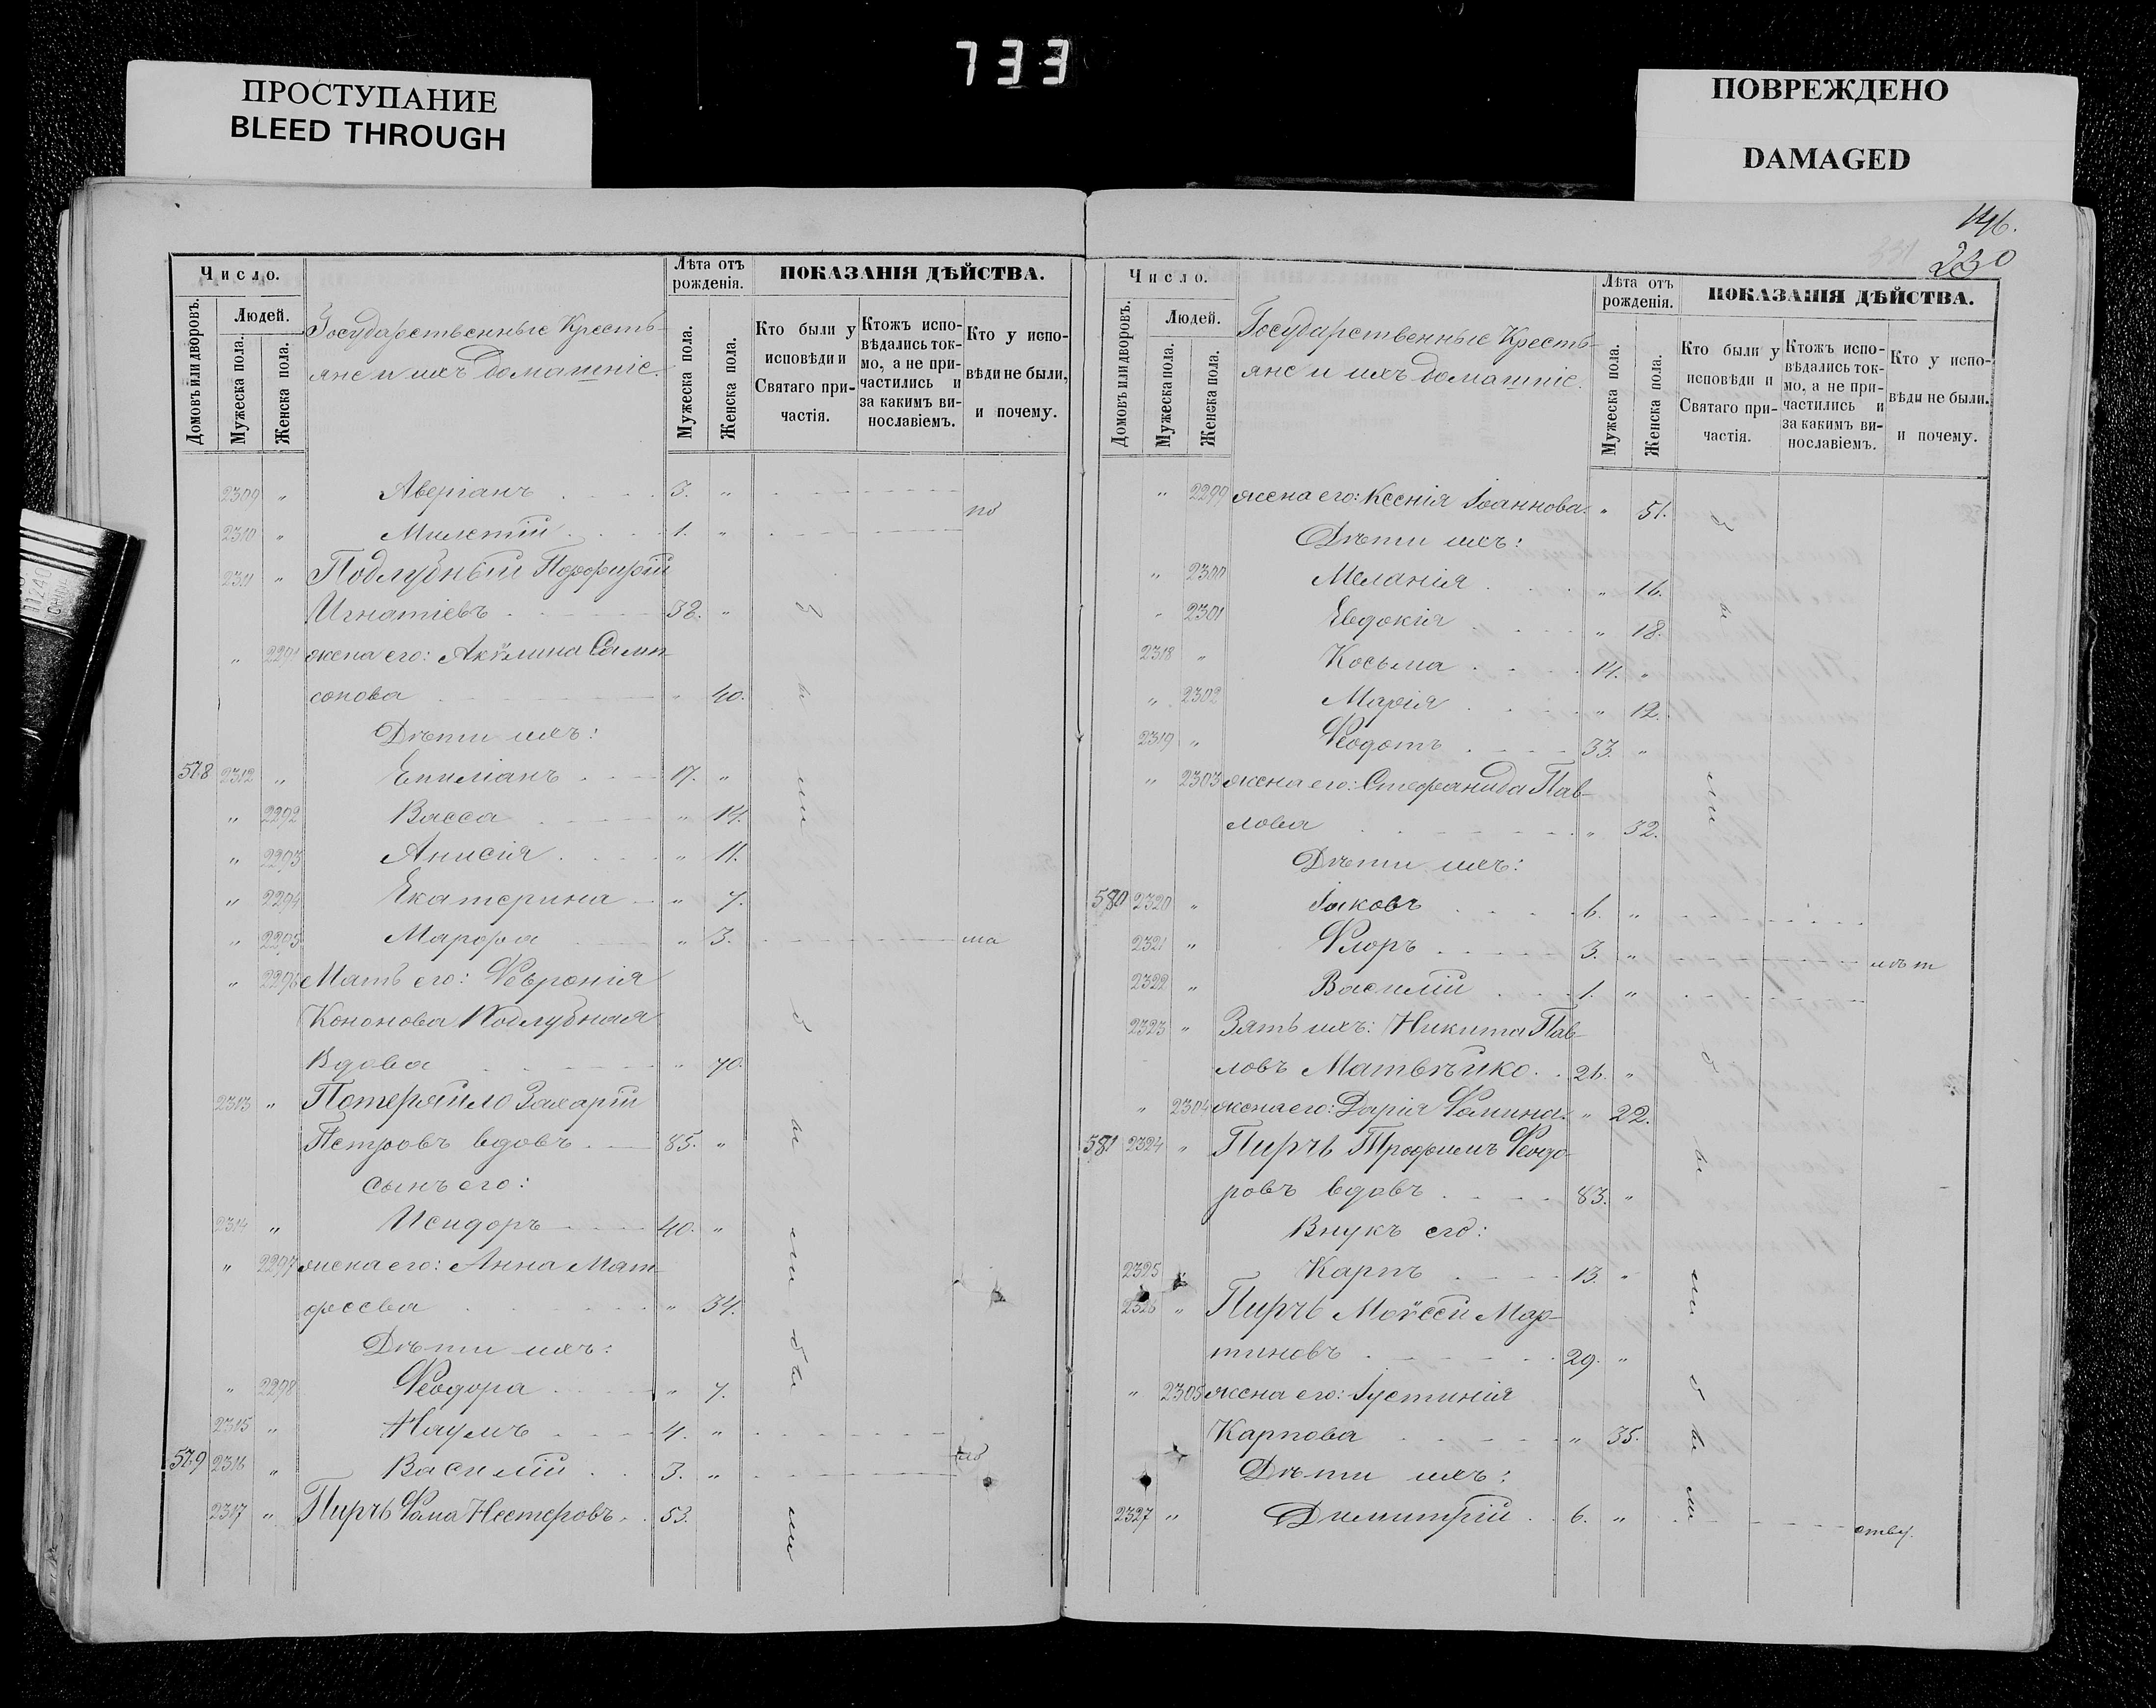 733
ПРОСТУПАНИЕ
BLEED THROUGH
ПОВРЕЖДЕНО
DAMAGED
Число.
Домовъ или дворовъ.
Людей.
Мужеска пола.
Женска пола.
Государственные Кресть-
яне и ихъ домашніе.
Лѣта отъ рожденія.
Мужеска пола.
Женска пола.
ПОКАЗАНІЯ ДѢЙСТВА.
Кто были у исповѣди и Святаго при-частія.
Ктожъ испо-вѣдались ток-мо, а не при-частились и за какимъ ви-нославіемъ.
Кто у испо-вѣди не были, и почему.
2309 " Аверіанъ 3. "
по
2310 " Милетій 1. "
2311 " Подлубный Порфирій
Игнатіевъ 32. " б
" 2291 жена его: Акѵлина Самп-
сонова " 40. ы
Дѣти ихъ:
578 2312 " Емиліанъ 17. " ли
" 2292 Васса " 14.
" 2293 Анисія " 11.
" 2294 Екатерина " 7.
" 2295 Марфа " 3. ма
" 2296 Мать его: Ѳевронія
Кононова Подлубная б
Вдова " 70.
2313 " Потеряйло Захарій
Петровъ вдовъ 85. " ы
сынъ его:
2314 " Исидоръ 40. " ли
" 2297 жена его: Анна Мат-
ѳеева " 34.
Дѣти ихъ: бы
" 2298 Ѳеодора " 7.
2315 " Наумъ 4. "
579 2316 " Василій 3. "
2317 " Пирчъ Ѳома Нестеровъ 53. ли
146.
230
331
Число.
Домовъ или дворовъ.
Людей.
Мужеска пола.
Женска пола.
Государственные Кресть-
яне и ихъ домашніе.
Лѣта отъ рожденія.
Мужеска пола.
Женска пола.
ПОКАЗАНІЯ ДѢЙСТВА.
Кто были у исповѣди и Святаго при-частія.
Ктожъ испо-вѣдались ток-мо, а не при-частились и за какимъ ви-нославіемъ.
Кто у испо-вѣди не были. и почему.
" 2299 жена его: Ксенія Іоаннова " 51. б
Дѣти ихъ:
" 2300 Меланія " 16.
" 2301 Евдокія " 18. ы
2318 " Косьма 14. "
" 2302 Марія " 12.
2319 " Ѳеодотъ 33. "
" 2303 жена его: Стефанида Пав- ли
лова " 32.
Дѣти ихъ:
580 2320 " Іаковъ 6. "
2321 " Флоръ 3. " лѣт
2322 " Василій 1. "
2323 " Зять ихъ: Никита Пав-
ловъ Матвѣйко 26. " б
" 2304 жена его: Дарія Ѳомина " 22.
581 2324 " Пирчъ Трофимъ Ѳеодо- ы
ровъ вдовъ 83. "
Внукъ его:
2325 Карпъ 13. " ли
2326 " Пирчъ Моѵсей Мар-
тиновъ 29. "
" 2305 жена его: Іустинія б
Карпова " 35. ы
Дѣти ихъ:
2327 " Димитрій 6. " ли
отву.